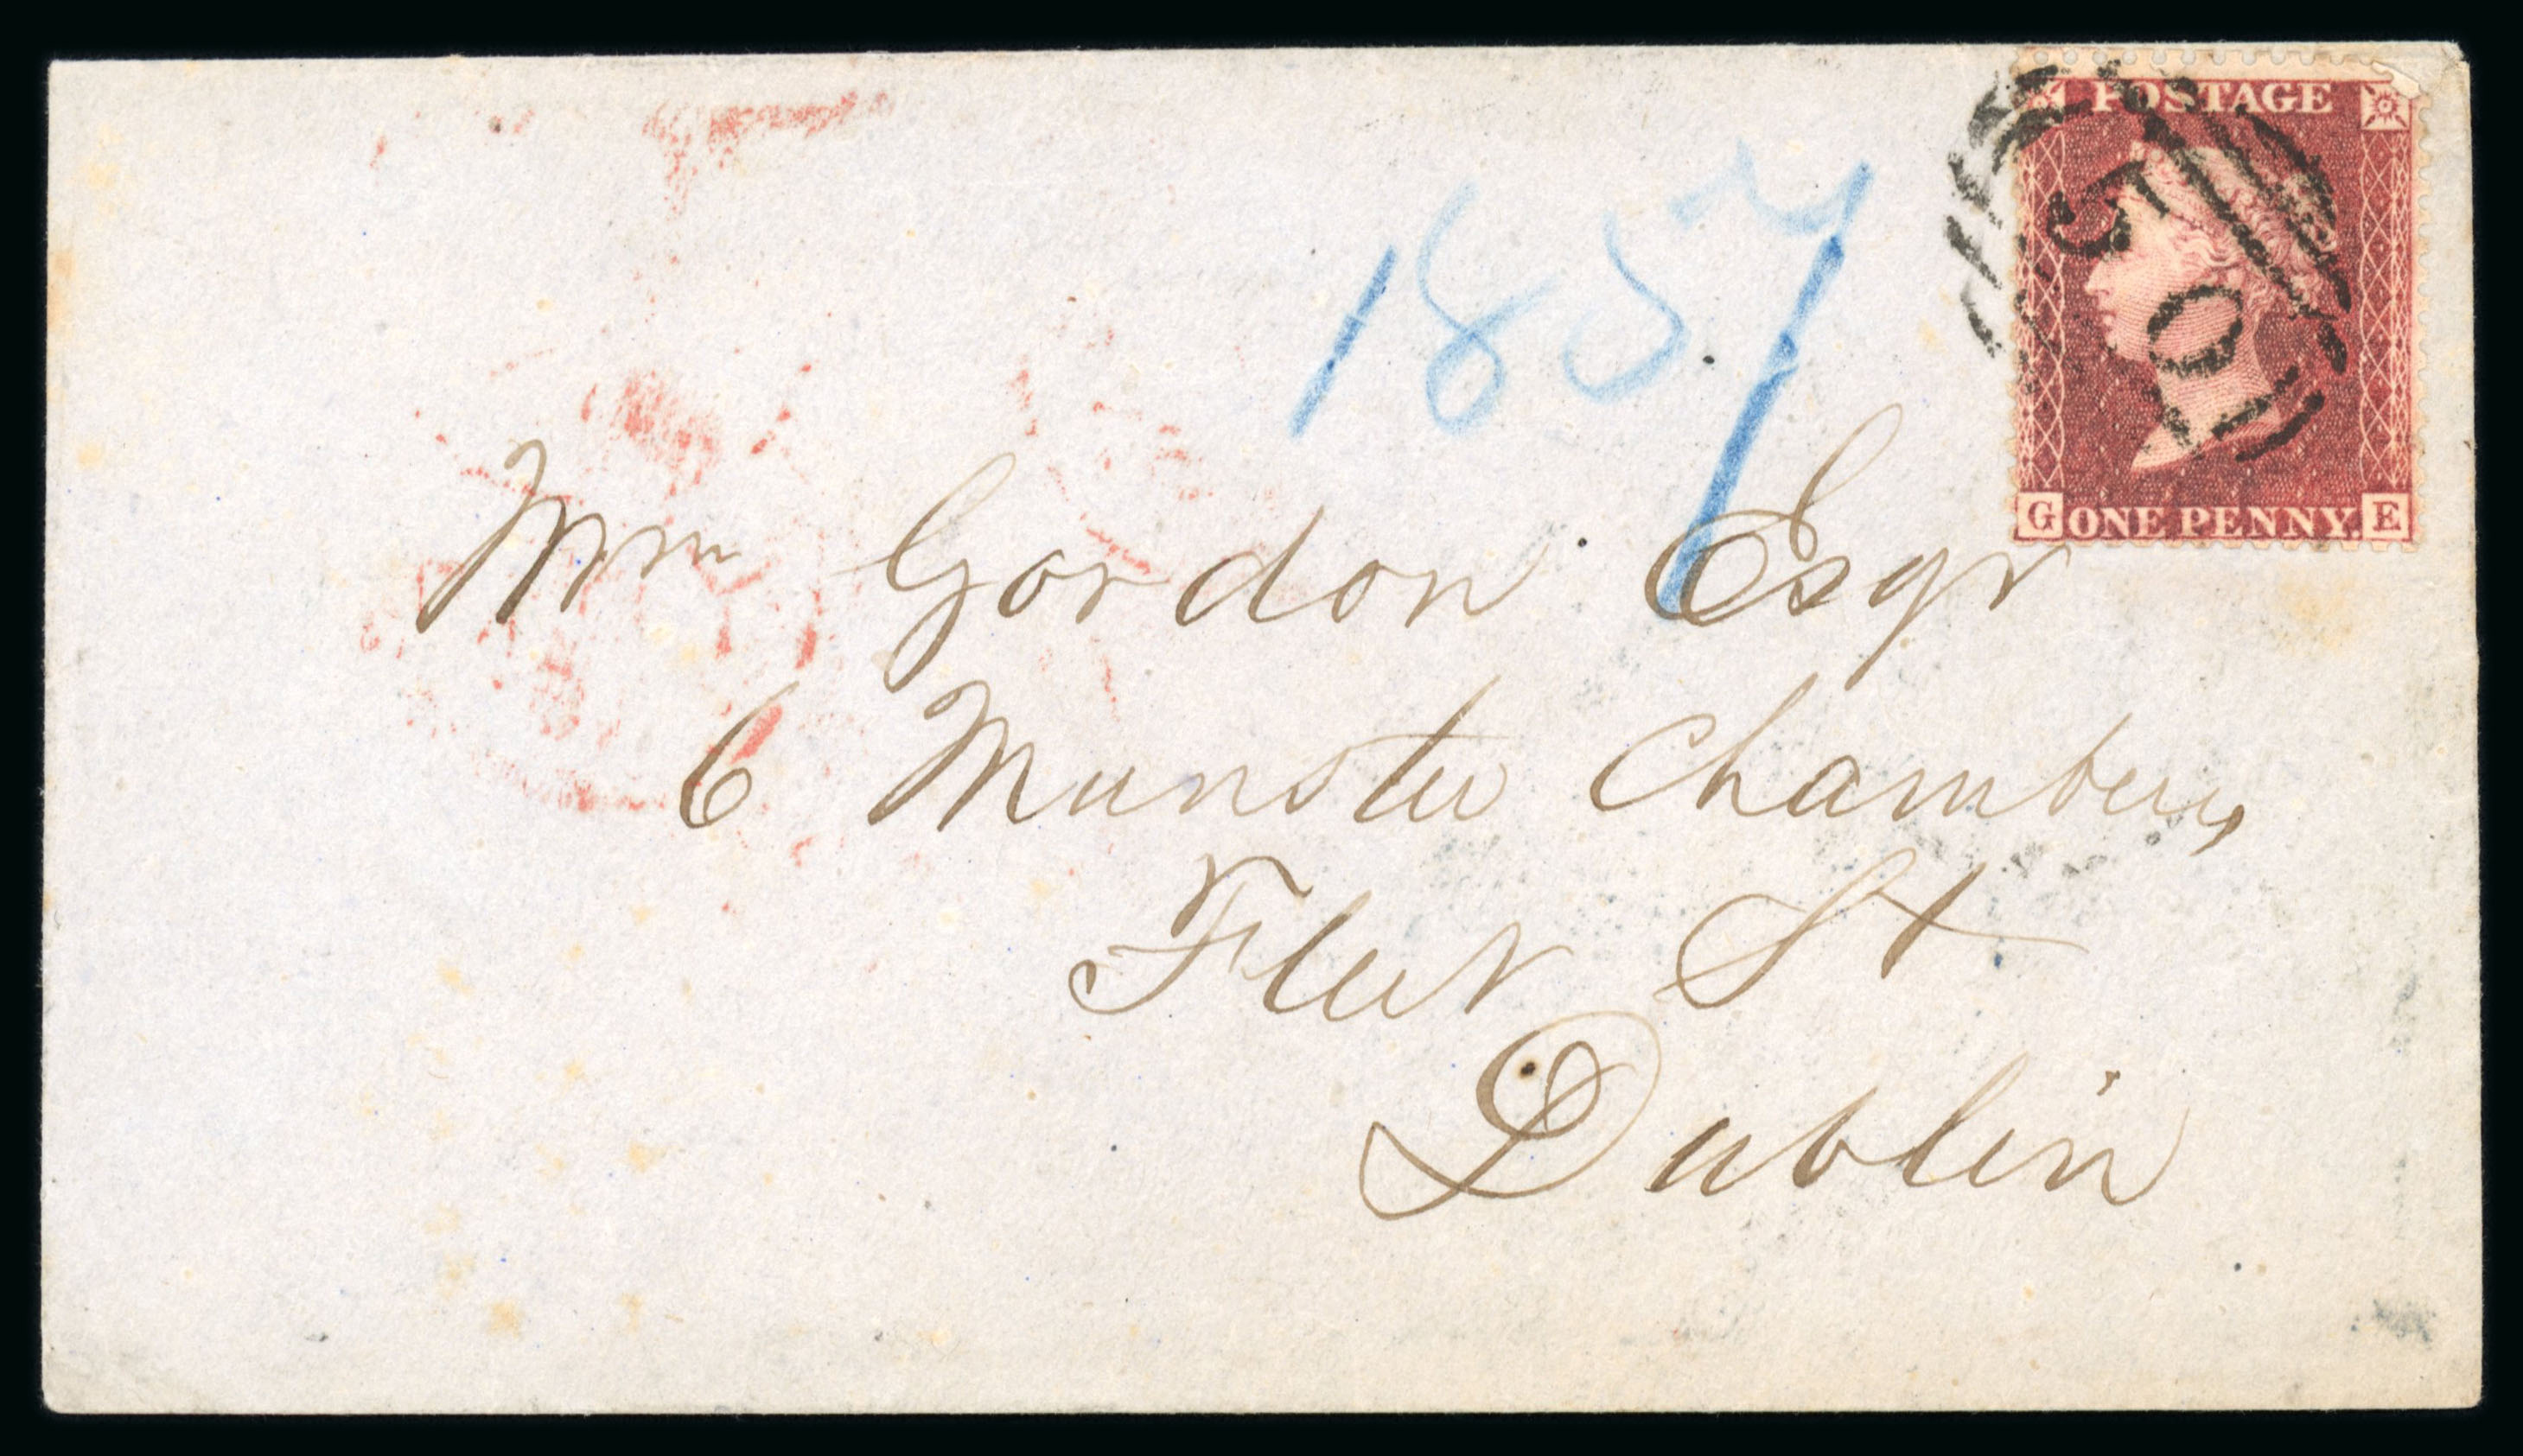 POSTAGE
1857
50
G ONE PENNY. E
Wm Gordon Esqr
6 Munster Chambers
Fleet St
Dublin